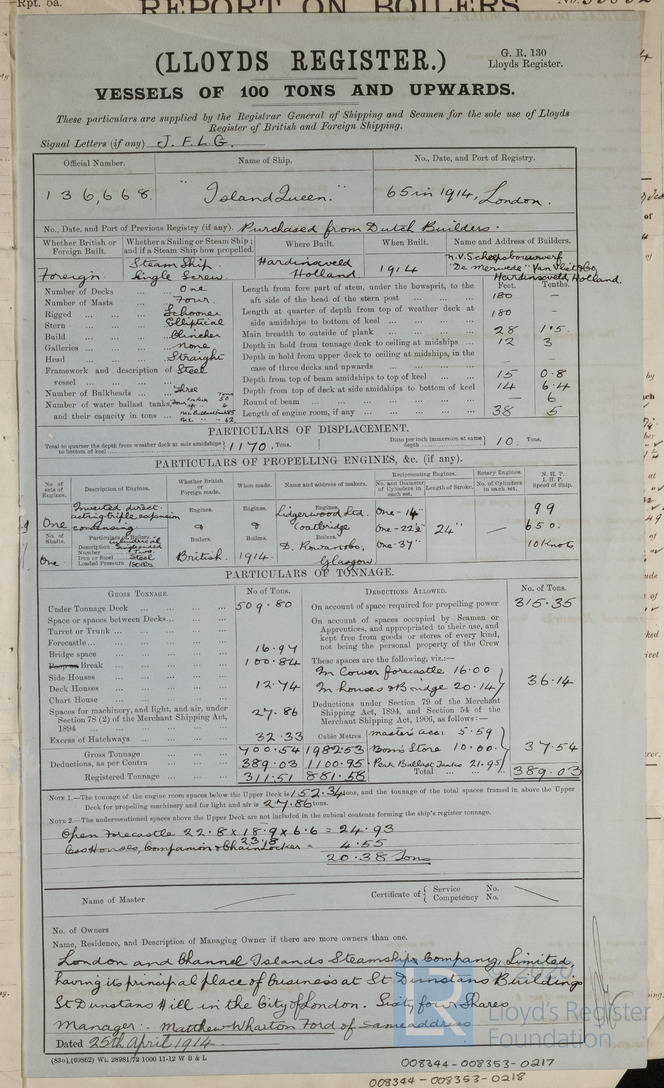 Rpt. 6a.
REPORT ON BOILERS
(LLOYDS REGISTER.)
G. R. 130
Lloyds Register.
VESSELS OF 100 TONS AND UPWARDS.
These particulars are supplied by the Registrar General of Shipping and Seamen for the sole use of Lloyds
Register of British and Foreign Shipping.
Signal Letters (if any) J. F. L. G.
Official Number. Name of Ship. No., Date, and Port of Registry.
136,668. "Island Queen." 65 in 1914, London.
No., Date, and Port of Previous Registry (if any). Purchased from Dutch Builders.
Whether British or Foreign Built. Whether a Sailing or Steam Ship; and if a Steam Ship how propelled. Where Built. When Built. Name and Address of Builders.
Foreign Steam Ship. Single Screw. Hardinxveld Holland 1914 N.V. Scheepsbouwwerf "De Merwede" Van Vliet & Co. Hardinxveld, Holland.
Feet. Tenths.
Number of Decks One
Number of Masts Four
Rigged Schooner
Stern Elliptical
Build Clincher
Galleries None
Head Straight
Framework and description of vessel Steel
Number of Bulkheads Three
Number of water ballast tanks, and their capacity in tons
Length from fore part of stem, under the bowsprit, to the aft side of the head of the stern post 180 –
Length at quarter of depth from top of weather deck at side amidships to bottom of keel 180 –
Main breadth to outside of plank 28 1.5
Depth in hold from tonnage deck to ceiling at midships 12 3
Depth in hold from upper deck to ceiling at midships, in the case of three decks and upwards – –
Depth from top of beam amidships to top of keel 15 0.8
Depth from top of deck at side amidships to bottom of keel 14 6.4
Round of beam – 6
Length of engine room, if any 38 5
PARTICULARS OF DISPLACEMENT.
Total to quarter the depth from weather deck at side amidships to bottom of keel 1170 Tons. Ditto per inch immersion at same depth 10. Tons.
PARTICULARS OF PROPELLING ENGINES, &c. (if any).
No. of sets of Engines. Description of Engines. Whether British or Foreign made. When made. Name and address of makers. Reciprocating Engines. Rotary Engines. N. H. P. I. H. P. Speed of ship.
No. and Diameter of Cylinders in each set. Length of Stroke. No. of Cylinders in each set.
One Inverted direct acting triple expansion condensing
Engines. Engines. Engines.
Lidgerwood Ltd. Coatbridge One-14" One-22½" One-37" 24" – 99 650. 10 Knots
No. of Shafts. Particulars of Boilers.
Description
Number Two
Iron or Steel Steel
Loaded Pressure 180 lbs
Boilers. Boilers. Boilers.
One British. 1914. D. Rowan & Co. Glasgow
PARTICULARS OF TONNAGE.
GROSS TONNAGE. No of Tons. DEDUCTIONS ALLOWED. No. of Tons.
Under Tonnage Deck 509.80
Space or spaces between Decks
Turret or Trunk
Forecastle
Bridge space 16.97
Poop or Break 100.84
Side Houses
Deck Houses 12.74
Chart House
Spaces for machinery, and light, and air, under Section 78 (2) of the Merchant Shipping Act, 1894 27.86
Excess of Hatchways 32.33 Cubic Metres
Gross Tonnage 700.54 1982.53
Deductions, as per Contra 389.03 1100.95
Registered Tonnage 311.51 881.58
On account of space required for propelling power 315.35
On account of spaces occupied by Seamen or Apprentices, and appropriated to their use, and kept free from goods or stores of every kind, not being the personal property of the Crew
These spaces are the following, viz.:—
In lower forecastle 16.00
In houses & Bridge 20.14 36.14
Deductions under Section 79 of the Merchant Shipping Act, 1894, and Section 54 of the Merchant Shipping Act, 1906, as follows:—
Master's acc. 5.59
Bosn's Store 10.00
Peak Ballast Tanks 21.95 37.54
Total 389.03
NOTE 1.—The tonnage of the engine room spaces below the Upper Deck is 152.34 tons, and the tonnage of the total spaces framed in above the Upper
Deck for propelling machinery and for light and air is 27.86 tons.
NOTE 2.—The undermentioned spaces above the Upper Deck are not included in the cubical contents forming the ship's register tonnage.
Open Forecastle 22.8 x 18.9 x 6.6 = 24.93
Houses, Companion & Chain Locker = 4.55
20.38 Tons
Name of Master Certificate of { Service No. Competency No.
No. of Owners
Name, Residence, and Description of Managing Owner if there are more owners than one.
London and Channel Islands Steamship Company, Limited,
having its principal place of business at St Dunstans Buildings
St Dunstans Hill in the City of London. Sixty four Shares
Manager:- Matthew Wharton Ford of same address
Dated 25th April 1914.
(83o), (69862) Wt. 28981/72 1000 11-12 W B & L
© 2020
LR
Lloyd's Register
Foundation
008344-008353-0217
008344-008353-0218